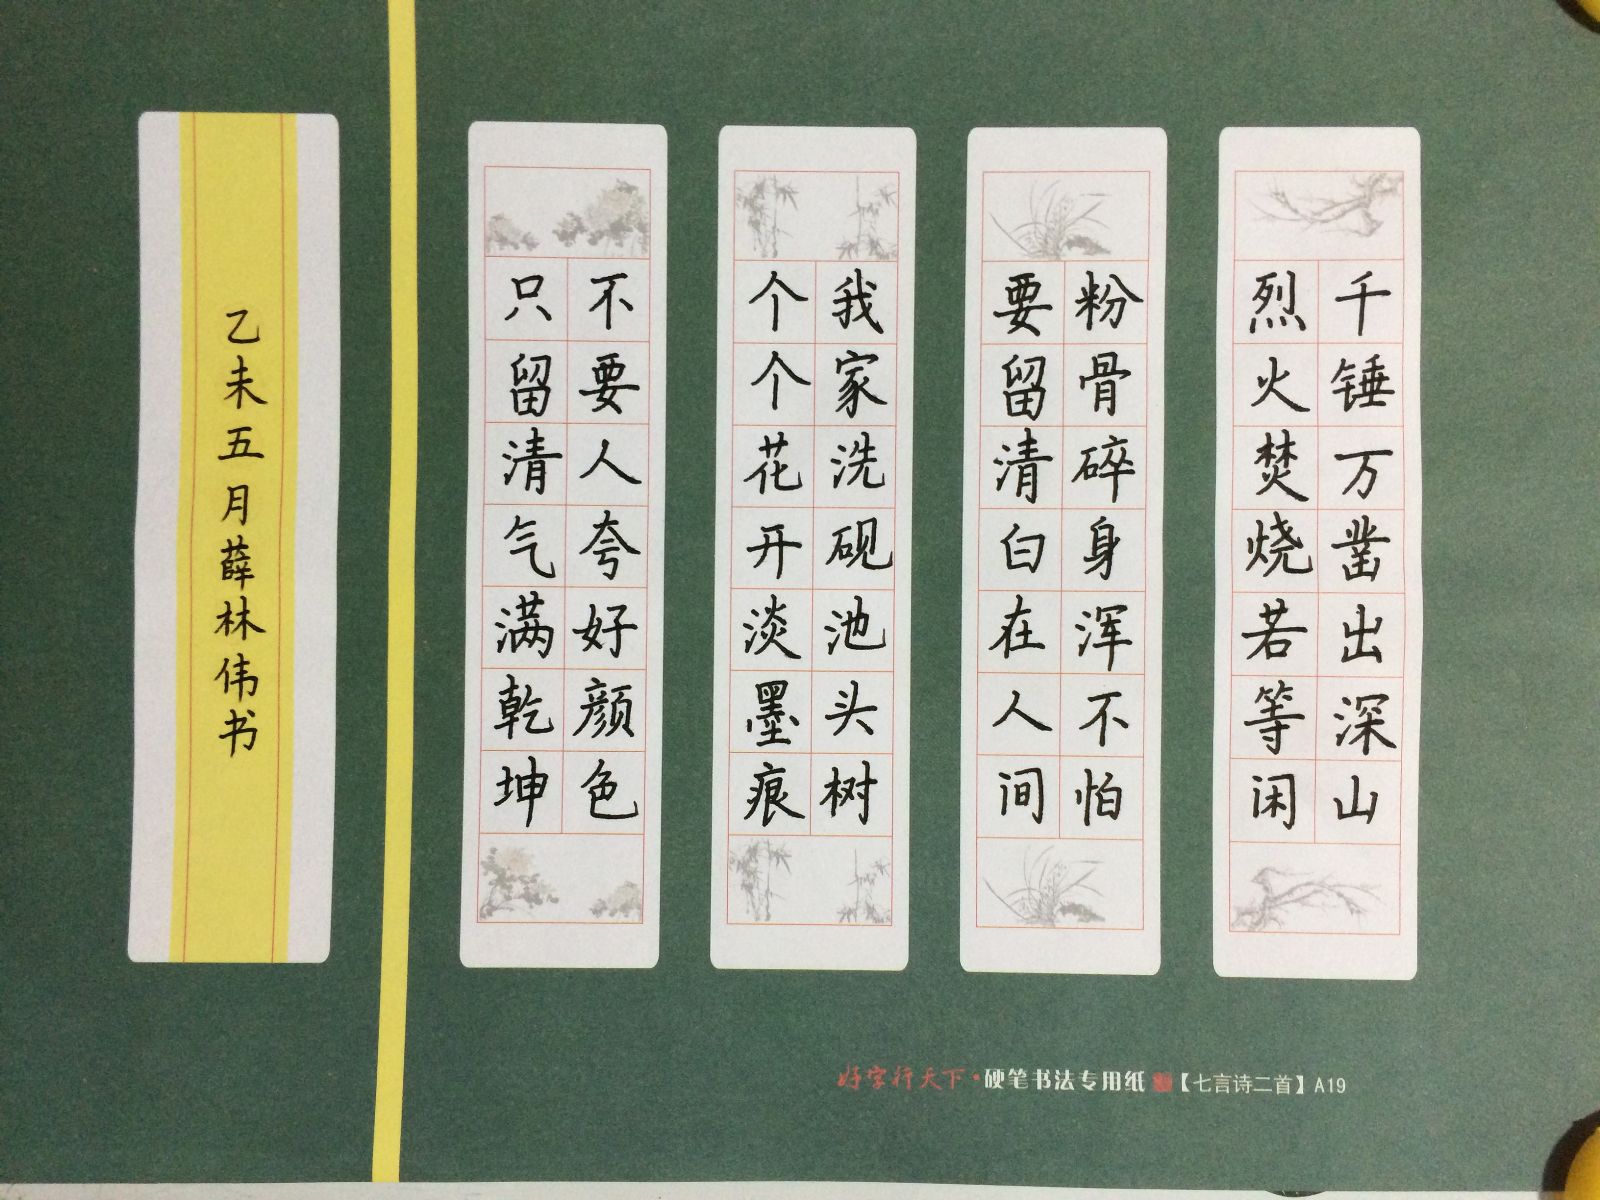 千锤万凿出深山
烈火焚烧若等闲
粉骨碎身浑不怕
要留清白在人间
我家洗砚池头树
个个花开淡墨痕
不要人夸好颜色
只留清气满乾坤
乙未五月薛林伟书
好字行天下·硬笔书法专用纸【七言诗二首】A19